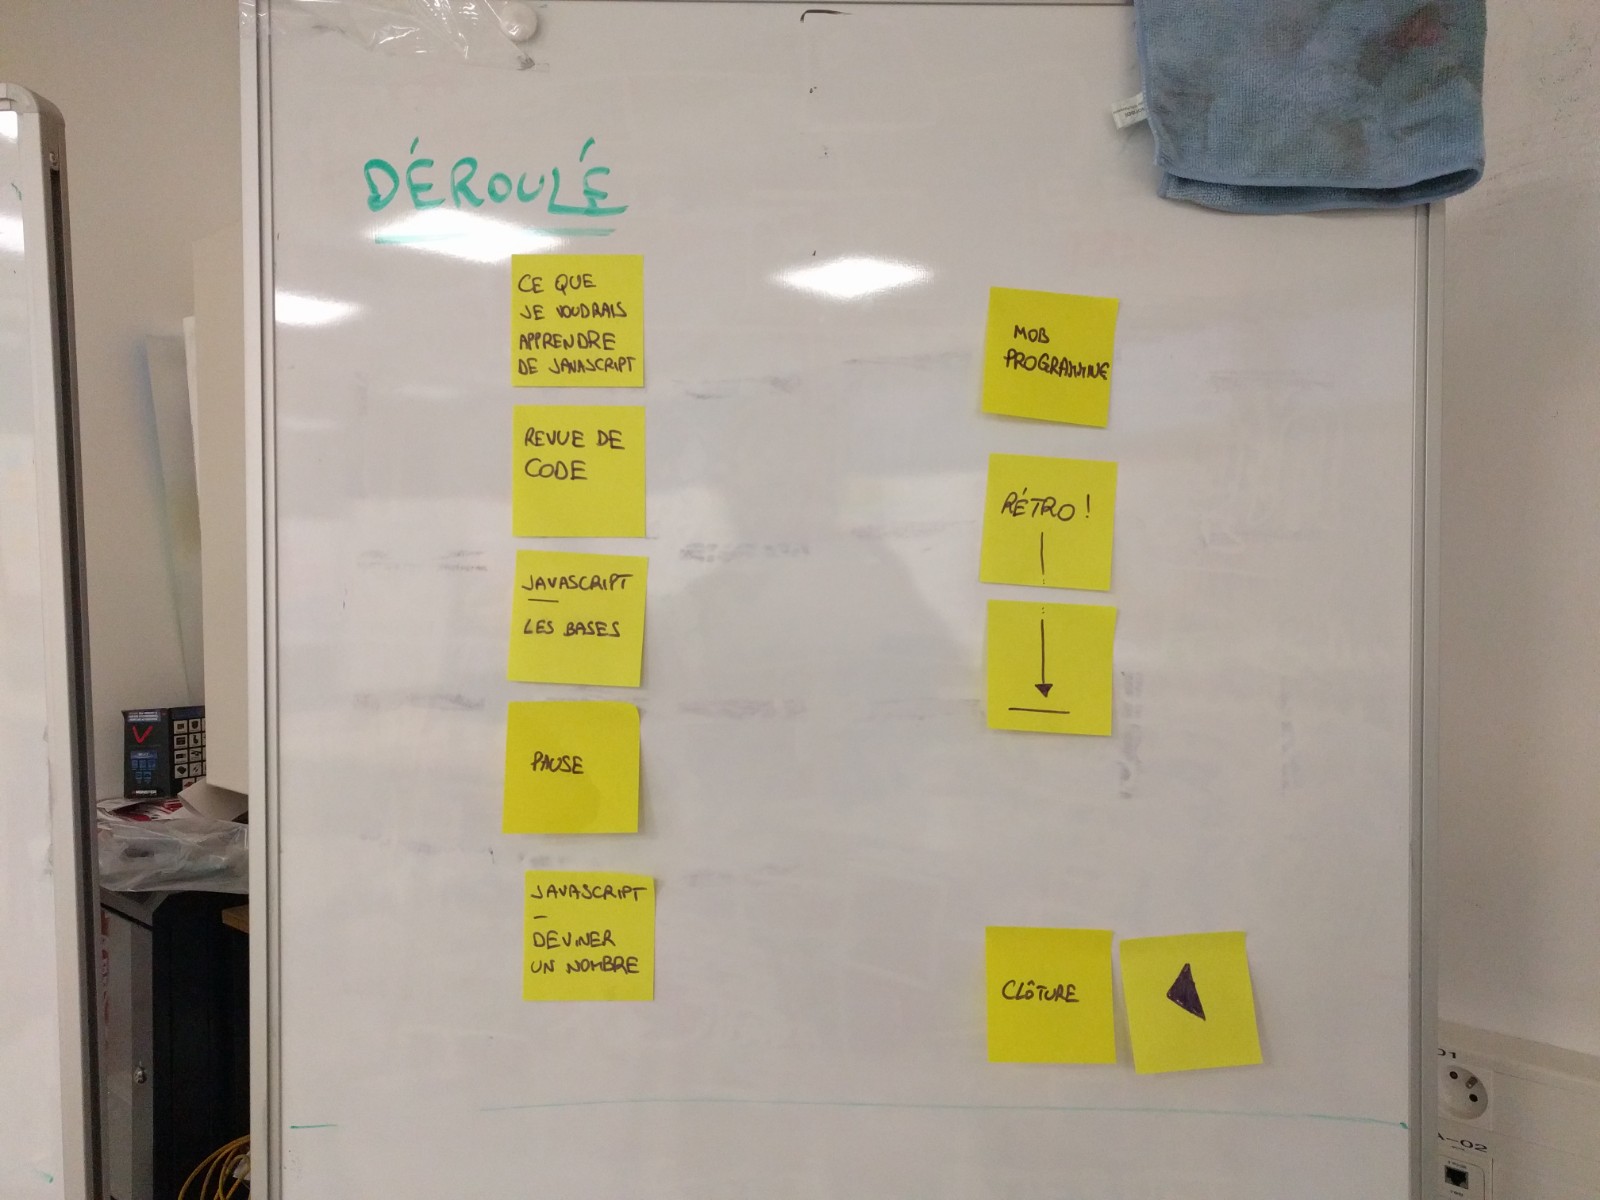 DÉROULÉ
CE QUE
JE VOUDRAIS
APPRENDRE
DE JAVASCRIPT
REVUE DE
CODE
JAVASCRIPT
—
LES BASES
PAUSE
JAVASCRIPT
–
DEVINER
UN NOMBRE
MOB
PROGRAMMING
RÉTRO !
CLÔTURE
01
A-02